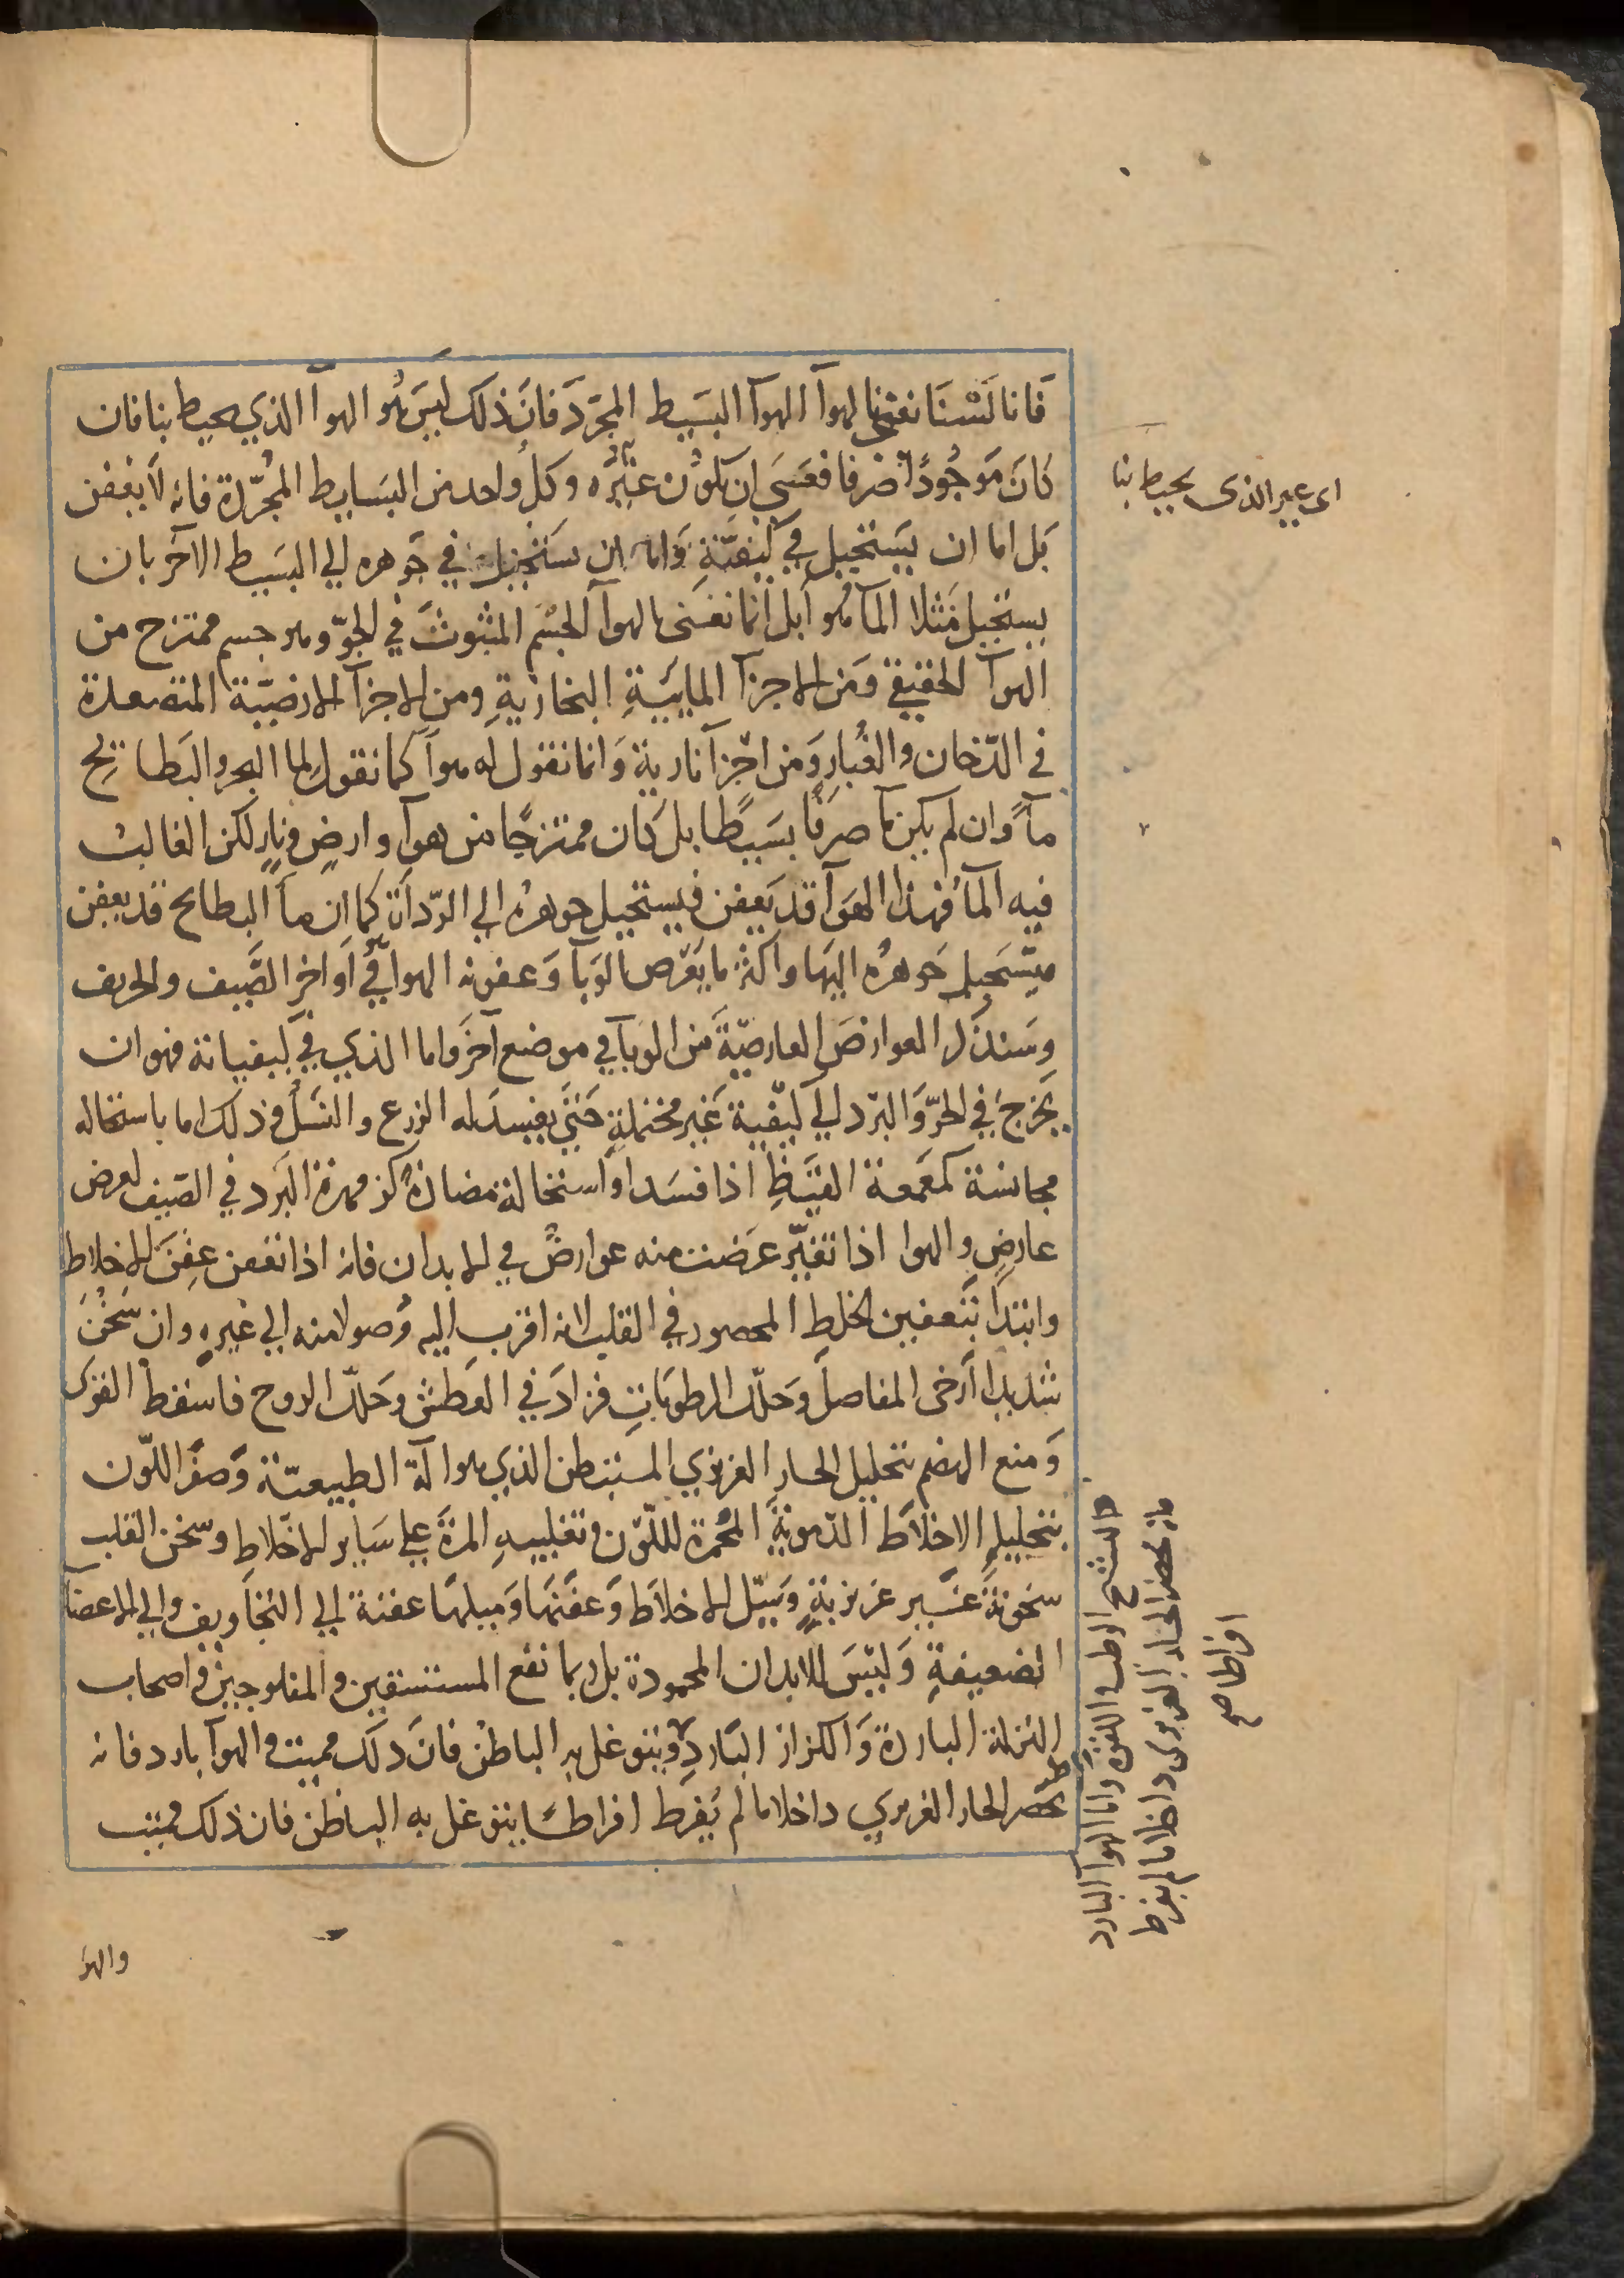 فانا لسنا نعني بالهوآ الهوآ البسيط المجرد فان ذلك ليس هو الهوآ الذي يحيط بنا فان
كان موجودا صرفا فعسى ان يكون غيره وكل واحد من البسايط المجردة فانه لا يعفن
بل اما ان يستحيل في كيفيته واما ان يستحيل في جوهره الي البسيط الآخر بان
يستحيل مثلا المآ هوآ بل انما نعنى بالهوآ الجسم المبثوث في الجو وهو جسم ممتزج من
الهوآ الحقيقي ومن الاجزآ المايية البخارية ومن الاجزآ الارضية المتصعدة
في الدخان والغبار ومن اجزآ نارية وانما نقول له هوآ كما نقول لما البحر والبطايح
مآ وان لم يكن مآ صرفا بسيطا بل كان ممتزجا من هوآ وارض ونار لكن الغالب
فيه المآ فهذا الهوآ قد يعفن فيستحيل جوهره الي الردآة كما ان مآ البطايح قد يعفن
فيستحيل جوهره اليها واكثر ما يعرض الوبآ وعفونة الهوآ في اواخر الصيف والخريف
وسنذكر العوارض العارضية من الوبآ في موضع آخر واما الذي في كيفياته فهو ان
يخرج في الحر والبرد الي كيفية غير محتملة حتي يفسد له الزرع والنسل وذلك اما باستحالة
مجانسة كمعمعة القيظ اذا فسد او استحالة مضادة كزمهرة البرد في الصيف لعرض
عارض والهوا اذا تغير عرضت منه عوارض في الابدان فانه اذا تعفن عفن الاخلاط
وابتدا بتعفين الخلط المحصور في القلب لانه اقرب اليه وصولا منه الي غيره وان سخن
شديدا ارخى المفاصل وحلل الرطوبات فزاد في العطش وحلل الروح فاسقط القوى
ومنع الهضم بتحليل الحار الغريزي المستبطن الذي هو آلة الطبيعة وصفر اللون
بتحليله الاخلاط الدموية المحمرة للون وتغليبه المرة علي ساير الاخلاط وسخن القلب
سخونة غير غريزية وسيل الاخلاط وعفنها وميلها عفنة الي التجاويف والي الاعضا
الضعيفة وليس للابدان المحمودة بل ربما نفع المستسقين والمفلوجين واصحاب
النزلة الباردة والكزاز البارد ويتوغل به الباطن فان ذلك مميت والهوآ بارد فانه
يحصر الحار الغريزي داخلا ما لم يفرط افراطا يتوغل به الباطن فان ذلك مميت
والهوآ
اى غير الذى يحيط بنا
الرطب واللقوة واما الهوآ البارد
فانه يحصر الحار الغريزى داخلا ما لم يفرط
افراطا صح